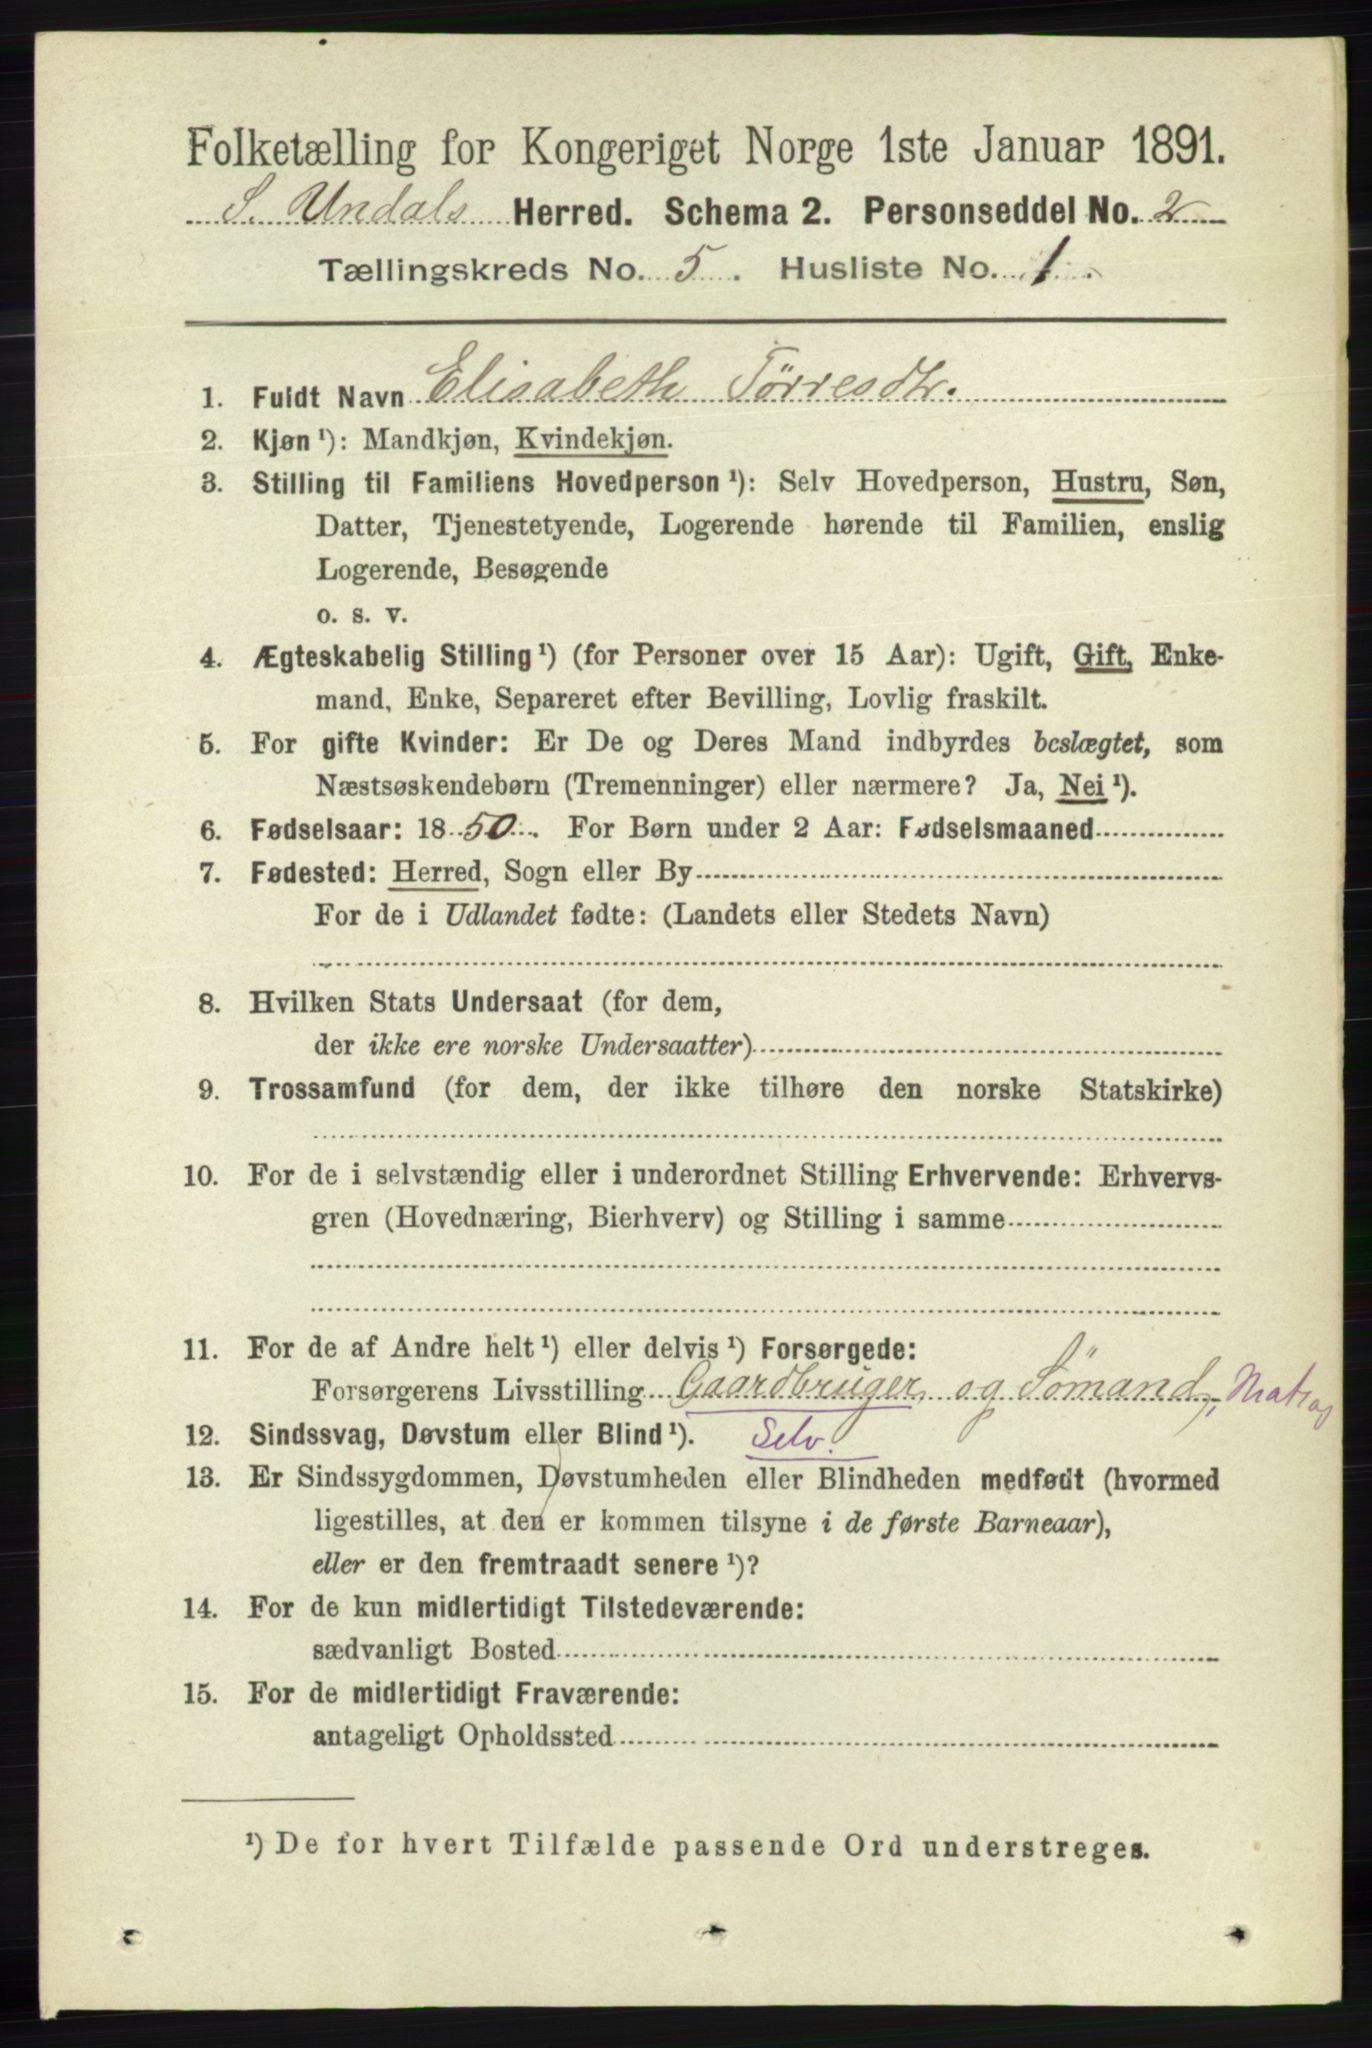 Folketælling for Kongeriget Norge 1ste Januar 1891.
S. Undals Herred. Schema 2. Personseddel No. 2
Tællingskreds No. 5. Husliste No. 1.
1. Fuldt Navn Elisabeth Törresdtr.
2. Kjøn ¹): Mandkjøn, Kvindekjøn.
3. Stilling til Familiens Hovedperson ¹): Selv Hovedperson, Hustru, Søn,
Datter, Tjenestetyende, Logerende hørende til Familien, enslig
Logerende, Besøgende
o. s. v.
4. Ægteskabelig Stilling ¹) (for Personer over 15 Aar): Ugift, Gift, Enke-
mand, Enke, Separeret efter Bevilling, Lovlig fraskilt.
5. For gifte Kvinder: Er De og Deres Mand indbyrdes beslægtet, som
Næstsøskendebørn (Tremenninger) eller nærmere? Ja, Nei ¹).
6. Fødselsaar: 1850. For Børn under 2 Aar: Fødselsmaaned
7. Fødested: Herred, Sogn eller By
For de i Udlandet fødte: (Landets eller Stedets Navn)
8. Hvilken Stats Undersaat (for dem,
der ikke ere norske Undersaatter)
9. Trossamfund (for dem, der ikke tilhøre den norske Statskirke)
10. For de i selvstændig eller i underordnet Stilling Erhvervende: Erhvervs-
gren (Hovednæring, Bierhverv) og Stilling i samme
11. For de af Andre helt ¹) eller delvis ¹) Forsørgede:
Forsørgerens Livsstilling Gaardbruger og Sömand, Matros
12. Sindssvag, Døvstum eller Blind ¹). Selv.
13. Er Sindssygdommen, Døvstumheden eller Blindheden medfødt (hvormed
ligestilles, at den er kommen tilsyne i de første Barneaar),
eller er den fremtraadt senere ¹)?
14. For de kun midlertidigt Tilstedeværende:
sædvanligt Bosted
15. For de midlertidigt Fraværende:
antageligt Opholdssted
¹) De for hvert Tilfælde passende Ord understreges.